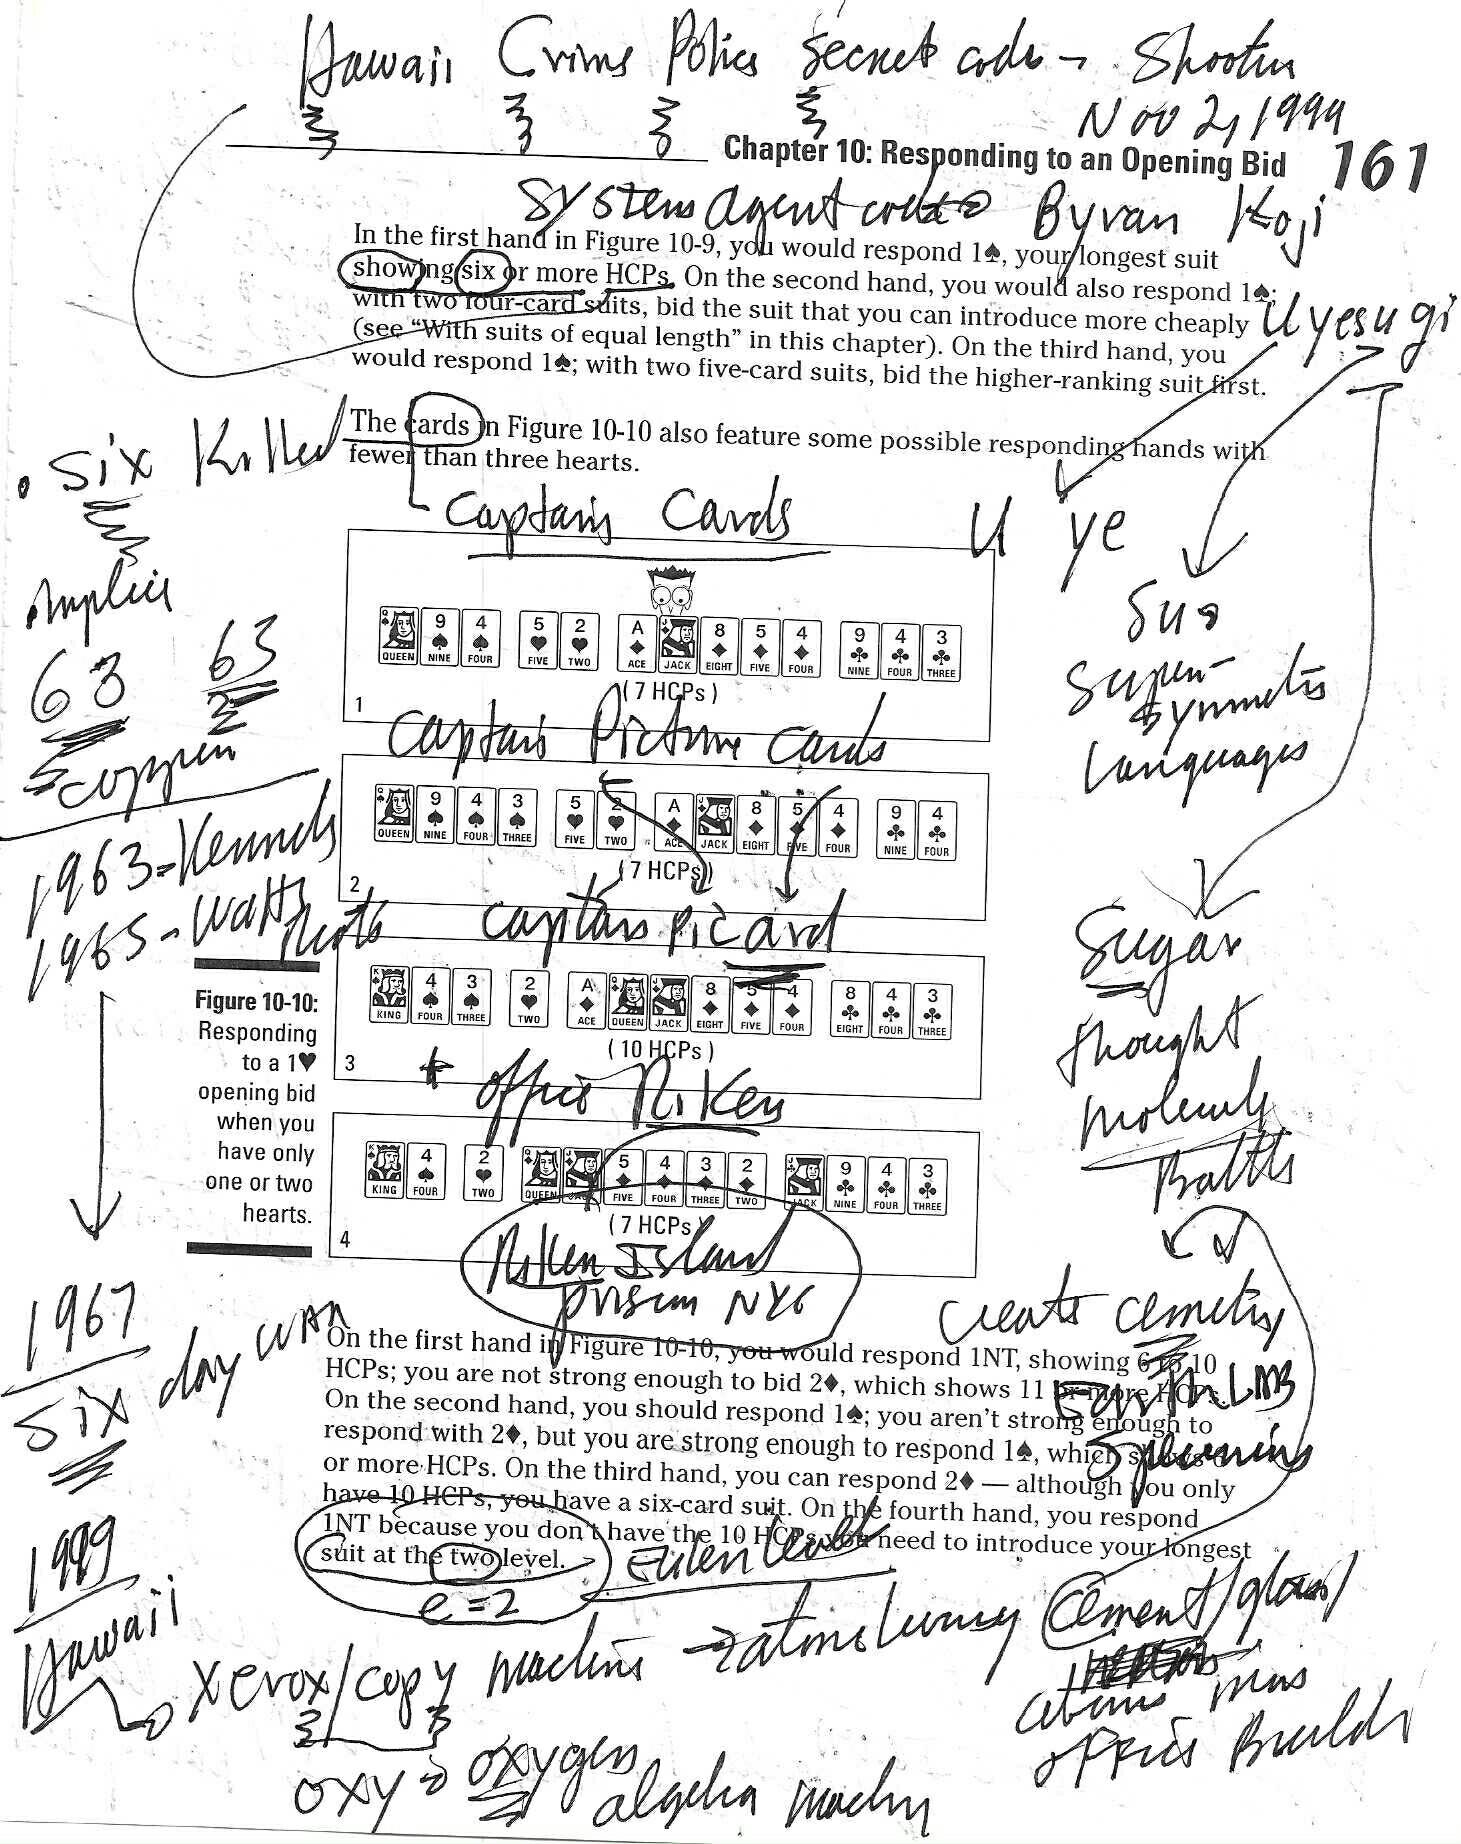 Hawaii Crime Police Secret code - Shooting
Nov 2, 1999
Chapter 10: Responding to an Opening Bid 161
Systems agent code Byran Koji
Uyesugi
In the first hand in Figure 10-9, you would respond 1♠, your longest suit
showing six or more HCPs. On the second hand, you would also respond 1♠;
with two four-card suits, bid the suit that you can introduce more cheaply
(see “With suits of equal length” in this chapter). On the third hand, you
would respond 1♠; with two five-card suits, bid the higher-ranking suit first.
The cards in Figure 10-10 also feature some possible responding hands with
fewer than three hearts.
. Six Killed
implies
63 63
copper
1963 - Kennedy
1965 - Watts
Captain Cards
U ye
Sus
Super-
symmetric
languages
Sugar
thought
molecule
Battle
QUEEN 9 NINE 4 FOUR 5 FIVE 2 TWO A ACE JACK 8 EIGHT 5 FIVE 4 FOUR 9 NINE 4 FOUR 3 THREE
(7 HCPs)
1
Captain Picture cards
QUEEN 9 NINE 4 FOUR 3 THREE 5 FIVE 2 TWO A ACE JACK 8 EIGHT 5 FIVE 4 FOUR 9 NINE 4 FOUR
(7 HCPs)
2
captain picard
KING 4 FOUR 3 THREE 2 TWO A ACE QUEEN JACK 8 EIGHT 5 FIVE 4 FOUR 8 EIGHT 4 FOUR 3 THREE
(10 HCPs)
3
+ office Riker
KING 4 FOUR 2 TWO QUEEN JACK 5 FIVE 4 FOUR 3 THREE 2 TWO JACK 9 NINE 4 FOUR 3 THREE
(7 HCPs)
4
Riker Island
prison NYC
Figure 10-10:
Responding
to a 1♥
opening bid
when you
have only
one or two
hearts.
1967
Six day war
1999
Hawaii
create cemetery
Earth
On the first hand in Figure 10-10, you would respond 1NT, showing 6 to 10
HCPs; you are not strong enough to bid 2♦, which shows 11 or more HCPs.
On the second hand, you should respond 1♠; you aren’t strong enough to
respond with 2♦, but you are strong enough to respond 1♠, which shows
or more HCPs. On the third hand, you can respond 2♦ — although you only
have 10 HCPs, you have a six-card suit. On the fourth hand, you respond
1NT because you don’t have the 10 HCPs you need to introduce your longest
suit at the two level.
Euler level
e=2
Xerox/copy machine → atoms Cement/glass/
atoms
office Build
oxy → oxygen
algebra